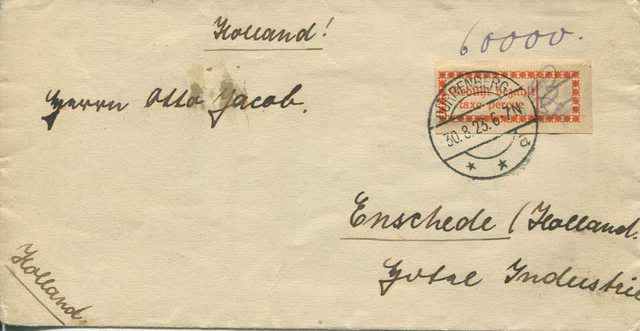 Holland!
60000.
Gebühr bezahlt
taxe perçue
NÜRNBERG
30.8.23.6-7N
Herrn Otto Jacob.
Enschede (Holland.
Hotel Industrie
Holland